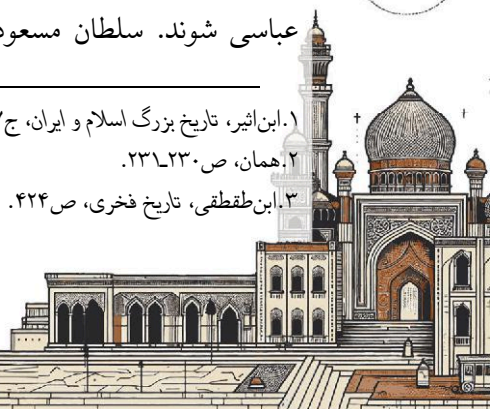 عباسی شوند. سلطان مسعود
۱.ابن‌اثیر، تاریخ بزرگ اسلام و ایران، ج
۲.همان، ص۲۳۰ـ۲۳۱.
۳.ابن‌طقطقی، تاریخ فخری، ص۴۲۴.